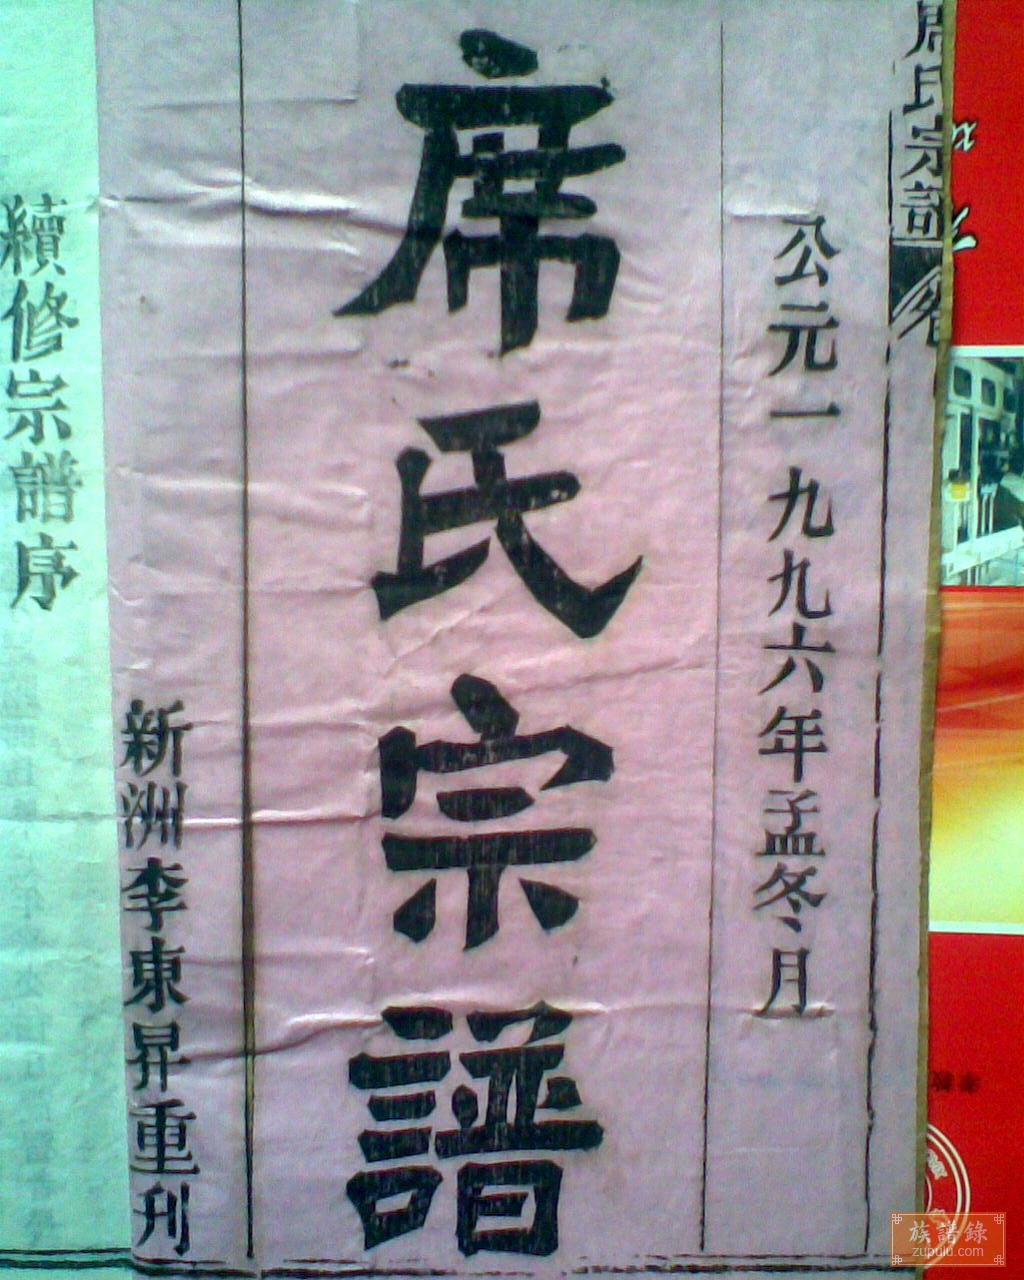 公元一九九六年孟冬月
席氏宗譜
新洲李東昇重刊
續修宗譜序
族譜錄
zupulu.com